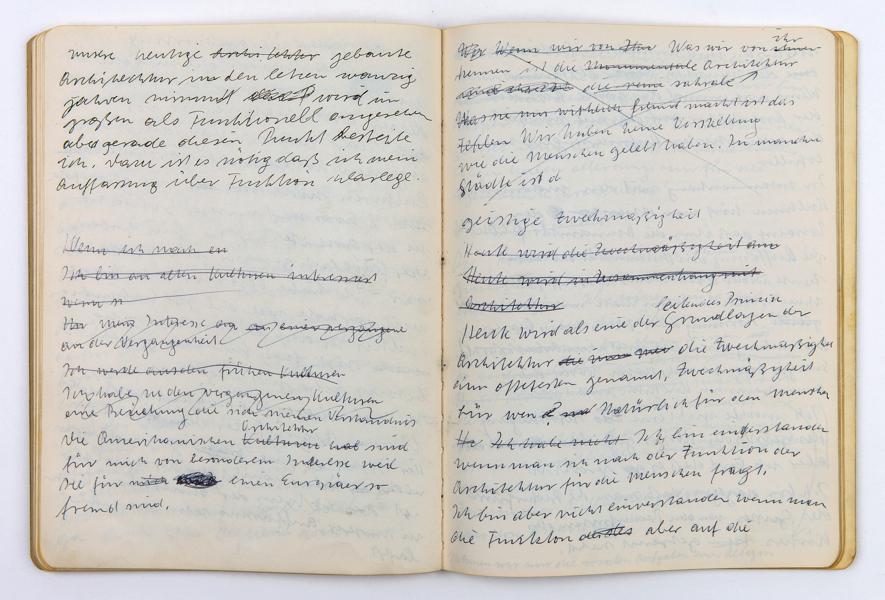 unsere heutige Architektur gebaute
Architektur in den letzen wanzig
Jahren nimmt wird im
großen als Funktionell angesehen
aber gerade diesen Punkt bestreite
ich. Dazu ist es nötig daß ich mein
Auffassung über Funktion klarlege.
Wenn ich mach en
Ich bin an alten Kulturen interessiert
wenn s
Har mein Interesse an vergangene
an der Vergangenheit
Ich werde aus den frühen Kulturen
Ich habe zu den vergangenen Kulturen
eine Beziehung die sich meinen Verständnis
Architektur
Die Amerikanischen Kulturen hat sind
für mich von besonderem Interesse weil
sie für mich einen Europäer so
fremd sind.
Ihr
Wer Wenn wir von Ihr Was wir von
kennen ist die Monumentale Architektur
die reine sakrale
Was sie nur wirklich fremd macht ist das
fehlen Wir haben keine Vorstellung
wie die Menschen gelebt haben. In manchen
Städte ist d
geistige Zweckmäßigkeit
Heute wird die Zweckmäßigkeit am
Heute wird in Zusammenhang mit
Architektur
leitendes Prinzip
Heute wird als eine der Grundlagen der
Architektur die Zweckmäßigkeit
am oftesten genannt. Zweckmäßigkeit
Für wen? Natürlich für den Menschen
He Ich habe nicht Ich bin einverstanden
wenn man sich nach der Funktion der
Architektur für die Menschen fragt.
Ich bin aber nicht einverstanden wenn man
die Funktion aber auf die